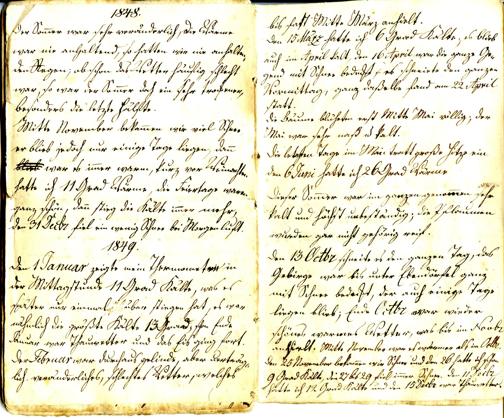 1848.
Der Sommer war sehr veränderlich, die Wärme
war nie anhaltend, so hatten wir nie anhalten-
den Regen, ob schon das Wetter häufig schlecht
war, so war der Sommer doch ein sehr trockener,
besonders die letzte Hälfte.
Mitte November bekamen wir viel Schnee
er blieb jedoch nur einige Tage liegen, dann
war es immer warm, kurz vor Weihnachten
hatte ich 11 Grad Wärme, die Feiertage waren
ganz schön, dann stieg die Kälte immer mehr,
den 31 Decbr fiel ein wenig Schnee bei Morgenlicht.
1849.
Den 1 Januar zeigte mein Thermometer in
der Mittagstunde 11 Grad Kälte, was es
später nur einmal überstiegen hat, es war
nämlich die größte Kälte 13 Grad, Ende
Januar war Thauwetter und das Eis ging fort.
Der Februar war durchaus gelinde aber
veränderliches, schlechtes Wetter, welches
bis fast Mitte März anhielt.
Den 15 März hatte ich 6 Grad Kälte, es blieb
auch im April kalt, den 16 April war die ganze Ge-
gend mit Schnee bedeckt, es schneite den ganzen
Vormittag, ganz dasselbe fand am 22 April
statt.
Die Bäume blühten erst Mitte Mai völlig, der
Mai war sehr naß & kalt.
Die letzten Tage im Mai große Hitze ein
den 6 Juni hatte ich 26 Grad Wärme
Dieser Sommer war im ganzen genommen sehr
kalt und höchst unbeständig; die Pflaumen
wurden gar nicht gehörig reif.
Den 13 Octbr schneite es den ganzen Tag, das
Gebirge war bis unter Ebendörfel ganz
mit Schnee bedeckt, der auch einige Tage
liegen blieb, Ende Octbr war wieder
schönes warmes Wetter, was bis im Novbr
anhielt. Mitte November war es wärmer als im Octbr
den 25 November bekamen wir Schnee und den 26 hatte ich schon
9 Grad Kälte, den 27 & 29 fiel immer Schnee, den 11 Decbr
hatte ich 12 Grad Kälte und den 13 Decbr war Thauwetter